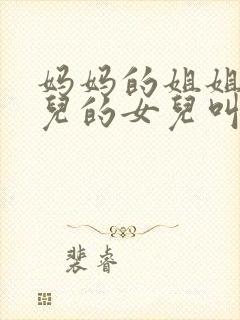 妈妈的姐姐
兒的女兒叫
裴睿